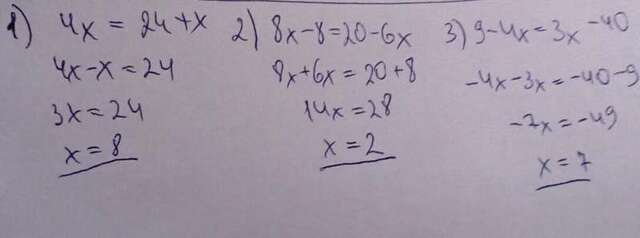 1) 4x = 24+x
4x-x=24
3x=24
x=8
2) 8x-8=20-6x
8x+6x=20+8
14x=28
x=2
3) 9-4x=3x-40
-4x-3x=-40-9
-7x=-49
x=7